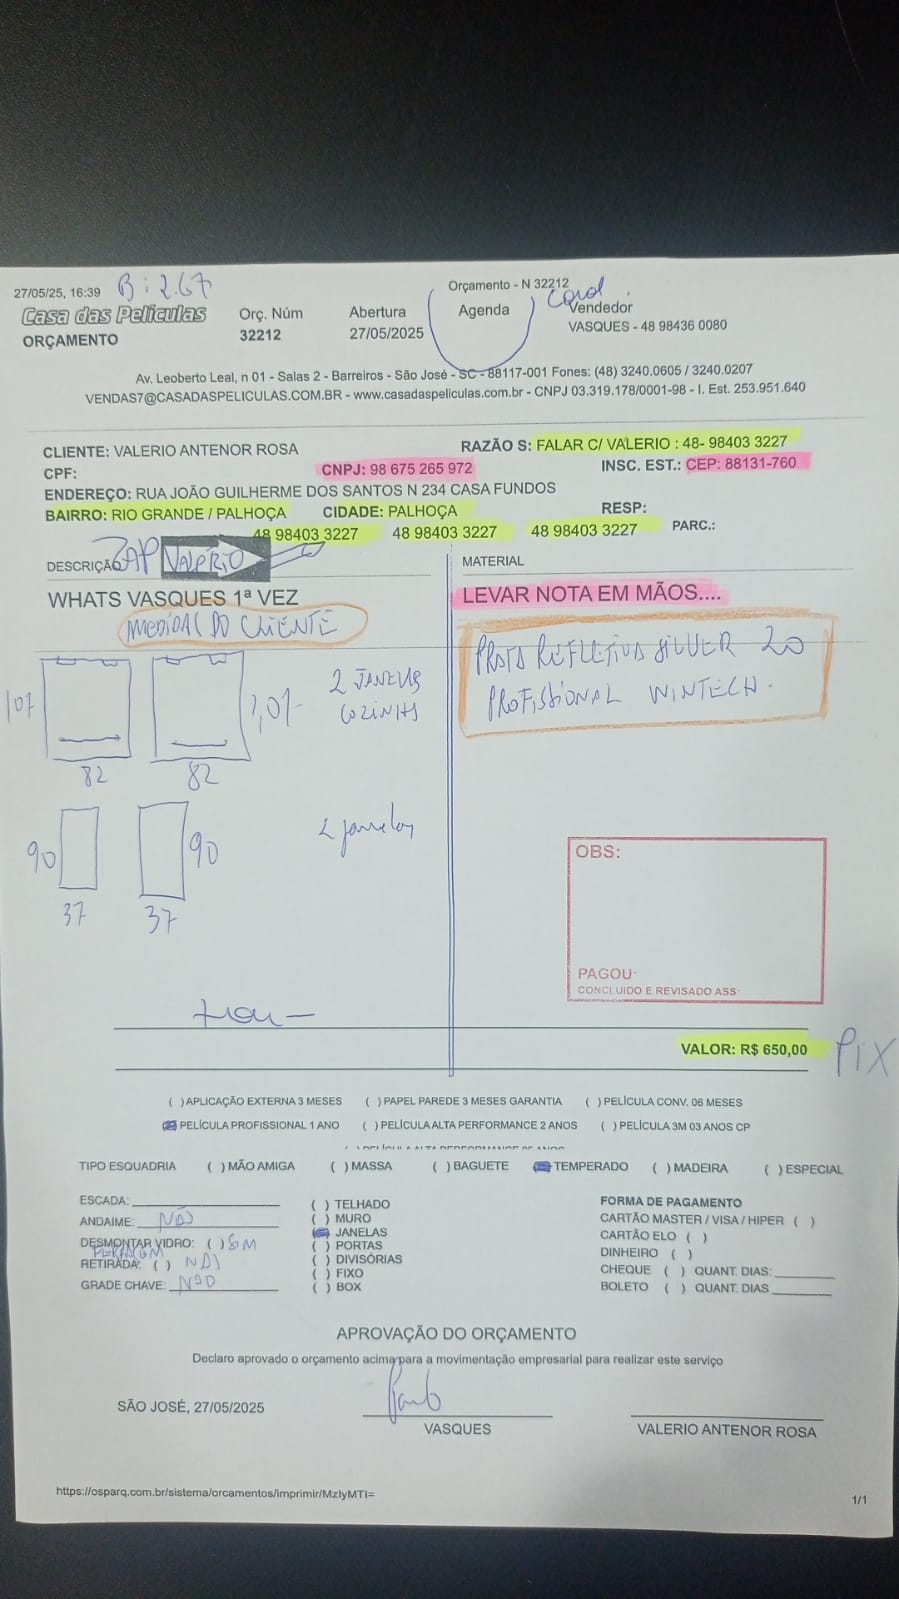 27/05/25, 16:39
B: 267
Orçamento - N 32212
Casa das Películas
ORÇAMENTO
Orç. Núm
32212
Abertura
27/05/2025
Agenda
Vendedor
VASQUES - 48 98436 0080
Av. Leoberto Leal, n 01 - Salas 2 - Barreiros - São José - SC - 88117-001 Fones: (48) 3240.0605 / 3240.0207
VENDAS7@CASADASPELICULAS.COM.BR - www.casadaspeliculas.com.br - CNPJ 03.319.178/0001-98 - I. Est. 253.951.640
CLIENTE: VALERIO ANTENOR ROSA
RAZÃO S: FALAR C/ VALERIO : 48- 98403 3227
CPF:
CNPJ: 98 675 265 972
INSC. EST.: CEP: 88131-760
ENDEREÇO: RUA JOÃO GUILHERME DOS SANTOS N 234 CASA FUNDOS
BAIRRO: RIO GRANDE / PALHOÇA
CIDADE: PALHOÇA
RESP:
48 98403 3227 48 98403 3227 48 98403 3227
PARC.:
DESCRIÇÃO
ZAP VALÉRIO
MATERIAL
WHATS VASQUES 1ª VEZ
LEVAR NOTA EM MÃOS....
MEDIDAS DO CLIENTE
PRATA REFLETIVA SILVER 20
PROFISSIONAL WINTECH.
107
82
1,07
82
2 JANELAS
COZINHA
90
37
90
37
2 janelas
OBS:
PAGOU:
CONCLUIDO E REVISADO ASS
VALOR: R$ 650,00
PIX
( )APLICAÇÃO EXTERNA 3 MESES ( )PAPEL PAREDE 3 MESES GARANTIA ( )PELÍCULA CONV. 06 MESES
( )PELÍCULA PROFISSIONAL 1 ANO ( )PELÍCULA ALTA PERFORMANCE 2 ANOS ( )PELÍCULA 3M 03 ANOS CP
TIPO ESQUADRIA ( )MÃO AMIGA ( )MASSA ( )BAGUETE ( )TEMPERADO ( )MADEIRA ( )ESPECIAL
ESCADA:
ANDAIME: NÃO
DESMONTAR VIDRO: ( ) SIM
RETIRADA: ( ) NÃO
GRADE CHAVE: NÃO
( ) TELHADO
( ) MURO
( ) JANELAS
( ) PORTAS
( ) DIVISÓRIAS
( ) FIXO
( ) BOX
FORMA DE PAGAMENTO
CARTÃO MASTER / VISA / HIPER ( )
CARTÃO ELO ( )
DINHEIRO ( )
CHEQUE ( ) QUANT. DIAS:
BOLETO ( ) QUANT. DIAS
APROVAÇÃO DO ORÇAMENTO
Declaro aprovado o orçamento acima para a movimentação empresarial para realizar este serviço
SÃO JOSÉ, 27/05/2025
VASQUES
VALERIO ANTENOR ROSA
https://osparq.com.br/sistema/orcamentos/imprimir/MzIyMTI=
1/1